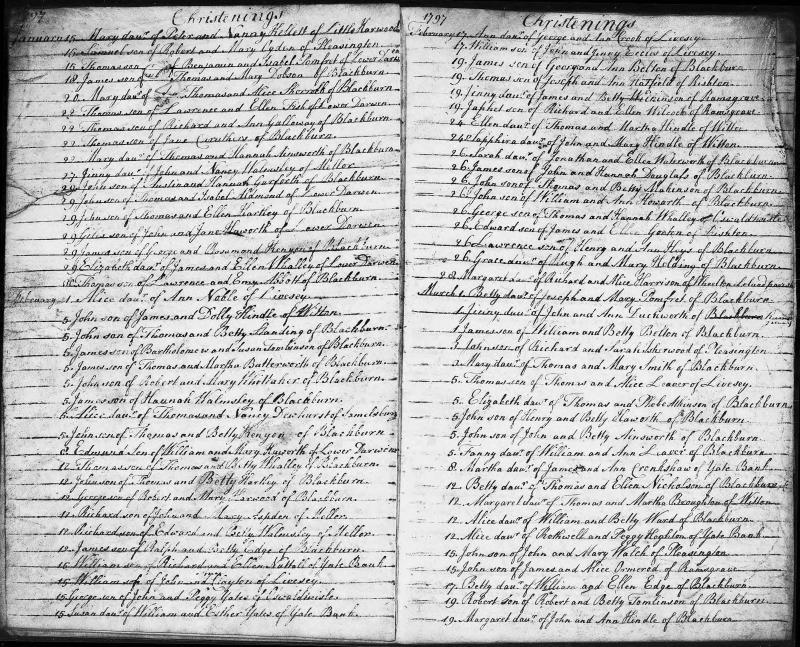 1797
Christenings
January 15 Mary daur. of Peter and Nancy Kellett of Little Harwood
15 Samuel son of Robert and Mary Ogden of Pleasington
15 Thomas son of Benjamin and Isabel Pomfret of Lower Darwen
18 James son of Thomas and Mary Dobson of Blackburn
20 Mary daur. of Thomas and Alice Shorrok of Blackburn
22 Thomas son of Lawrence and Ellen Fish of Lower Darwen
22 Thomas son of Richard and Ann Galloway of Blackburn
22 Thomas son of Jane Caruthers of Blackburn
22 Mary daur. of Thomas and Hannah Ainsworth of Blackburn
27 Jenny daur. of John and Nancy Walmsley of Mellor
29 John son of and Hannah Garforth of Blackburn
29 John son of Thomas and Isabel Almond of Lower Darwen
29 John son of Thomas and Ellen Hartley of Blackburn
29 Giles son of John and Jane Haworth of Lower Darwen
29 James son of George and Rosamond Kenyon of Blackburn
29 Elizabeth daur. of James and Ellen Whalley of Lower Darwen
30 Thomas son of Lawrence and Abbott of Blackburn
February 1 Alice daur. of Ann Noble of Livesey
5 John son of James and Dolly Hindle of Witton
5 John son of Thomas and Betty Handing of Blackburn
5 James son of Bartholomew and Susan Tomlinson of Blackburn
5 James son of Thomas and Martha Butterworth of Blackburn
5 John son of Robert and Mary Whittaker of Blackburn
5 James son of Hannah Walmsley of Blackburn
5 Alice daur. of Thomas and Nancy Dewhurst of Samelsbury
5 Johnson of Thomas and Betty Kenyon of Blackburn
8 Edmund Son of William and Mary Haworth of Lower Darwen
12 Thomas son of Thomas and Betty Whalley of Blackburn
12 John son of Thomas and Betty Hartley of Blackburn
12 George son of Robert and Mary Harwood of Blackburn
12 Richard son of John and Mary Aspden of Mellor
12 Richard son of Edward and Walmsley of Mellor
12 James son of Ralph and Betty Edge of Blackburn
15 William son of Richard and Ellen Nuttall of Yate Bank
15 William son of John Clayton of Livesey
15 George son of John and Peggy Yates of Oswaldtwistle
15 Susan daur. of William and Esther Yates of Yate Bank
1797
Christenings
February 17 Ann daur. of George and Ann Hook of Livesey
17 William son of John and Jenny Eccles of Livesey
19 James son of George and Ann Bolton of Blackburn
19 Thomas son of Joseph and Ann Hatfield of Rishton
19 Jenny daur. of James and Betty of Ramsgrave
19 Japhet son of Richard and Ellen Wilcock of Ramsgrave
24 Ellen daur. of Thomas and Martha Hindle of Witton
24 Sapphira daur. of John and Mary Hindle of Witton
26 Sarah daur. of Jonathan and Ellen Waterworth of Blackburn
26 James son of John and Hannah Douglass of Blackburn
26 John son of Thomas and Betty Makinson of Blackburn
26 John son of William and Ann Howorth of Blackburn
26 George son of Thomas and Hannah Whalley of Oswaldtwistle
26 Edward son of James and Ellen Gorton of Rishton
26 Lawrence son of Henry and Ann Heys of Blackburn
26 Grace daur. of Hugh and Mary Holding of Blackburn
28 Margaret daur. of Richard and Alice Harrison of Wheelton Leland parish
March 1 Betty daur. of Joseph and Mary Pomfret of Blackburn
1 Jenny daur. of John and Ann Duckworth of Blackburn
1 James son of William and Betty Bolton of Blackburn
3 Johnson of Richard and Sarah Isherwood of Pleasington
3 Mary daur. of Thomas and Mary Smith of Blackburn
5 Thomas son of Thomas and Alice Leaver of Livesey
5 Elizabeth daur. of Thomas and Phebe Atkinson of Blackburn
5 John son of Henry and Betty Haworth of Blackburn
5 John son of John and Betty Ainsworth of Blackburn
5 Fanny daur. of William and Ann Leaver of Blackburn
8 Martha daur. of James and Ann Cronkshaw of Yate Bank
12 Betty daur. of Thomas and Ellen Nicholson of Blackburn
12 Margaret daur. of Thomas and Martha Broughton of Witton
12 Alice daur. of William and Betty Ward of Blackburn
12 Alice daur. of Rothwell and Peggy Hoghton of Yate Bank
15 John son of John and Mary Walch of Pleasington
15 John son of James and Alice Ormerod of Ramsgrave
17 Betty daur. of William and Ellen Edge of Blackburn
19 Robert son of Robert and Betty Tomlinson of Blackburn
19 Margaret daur. of John and Ann Hindle of Blackburn